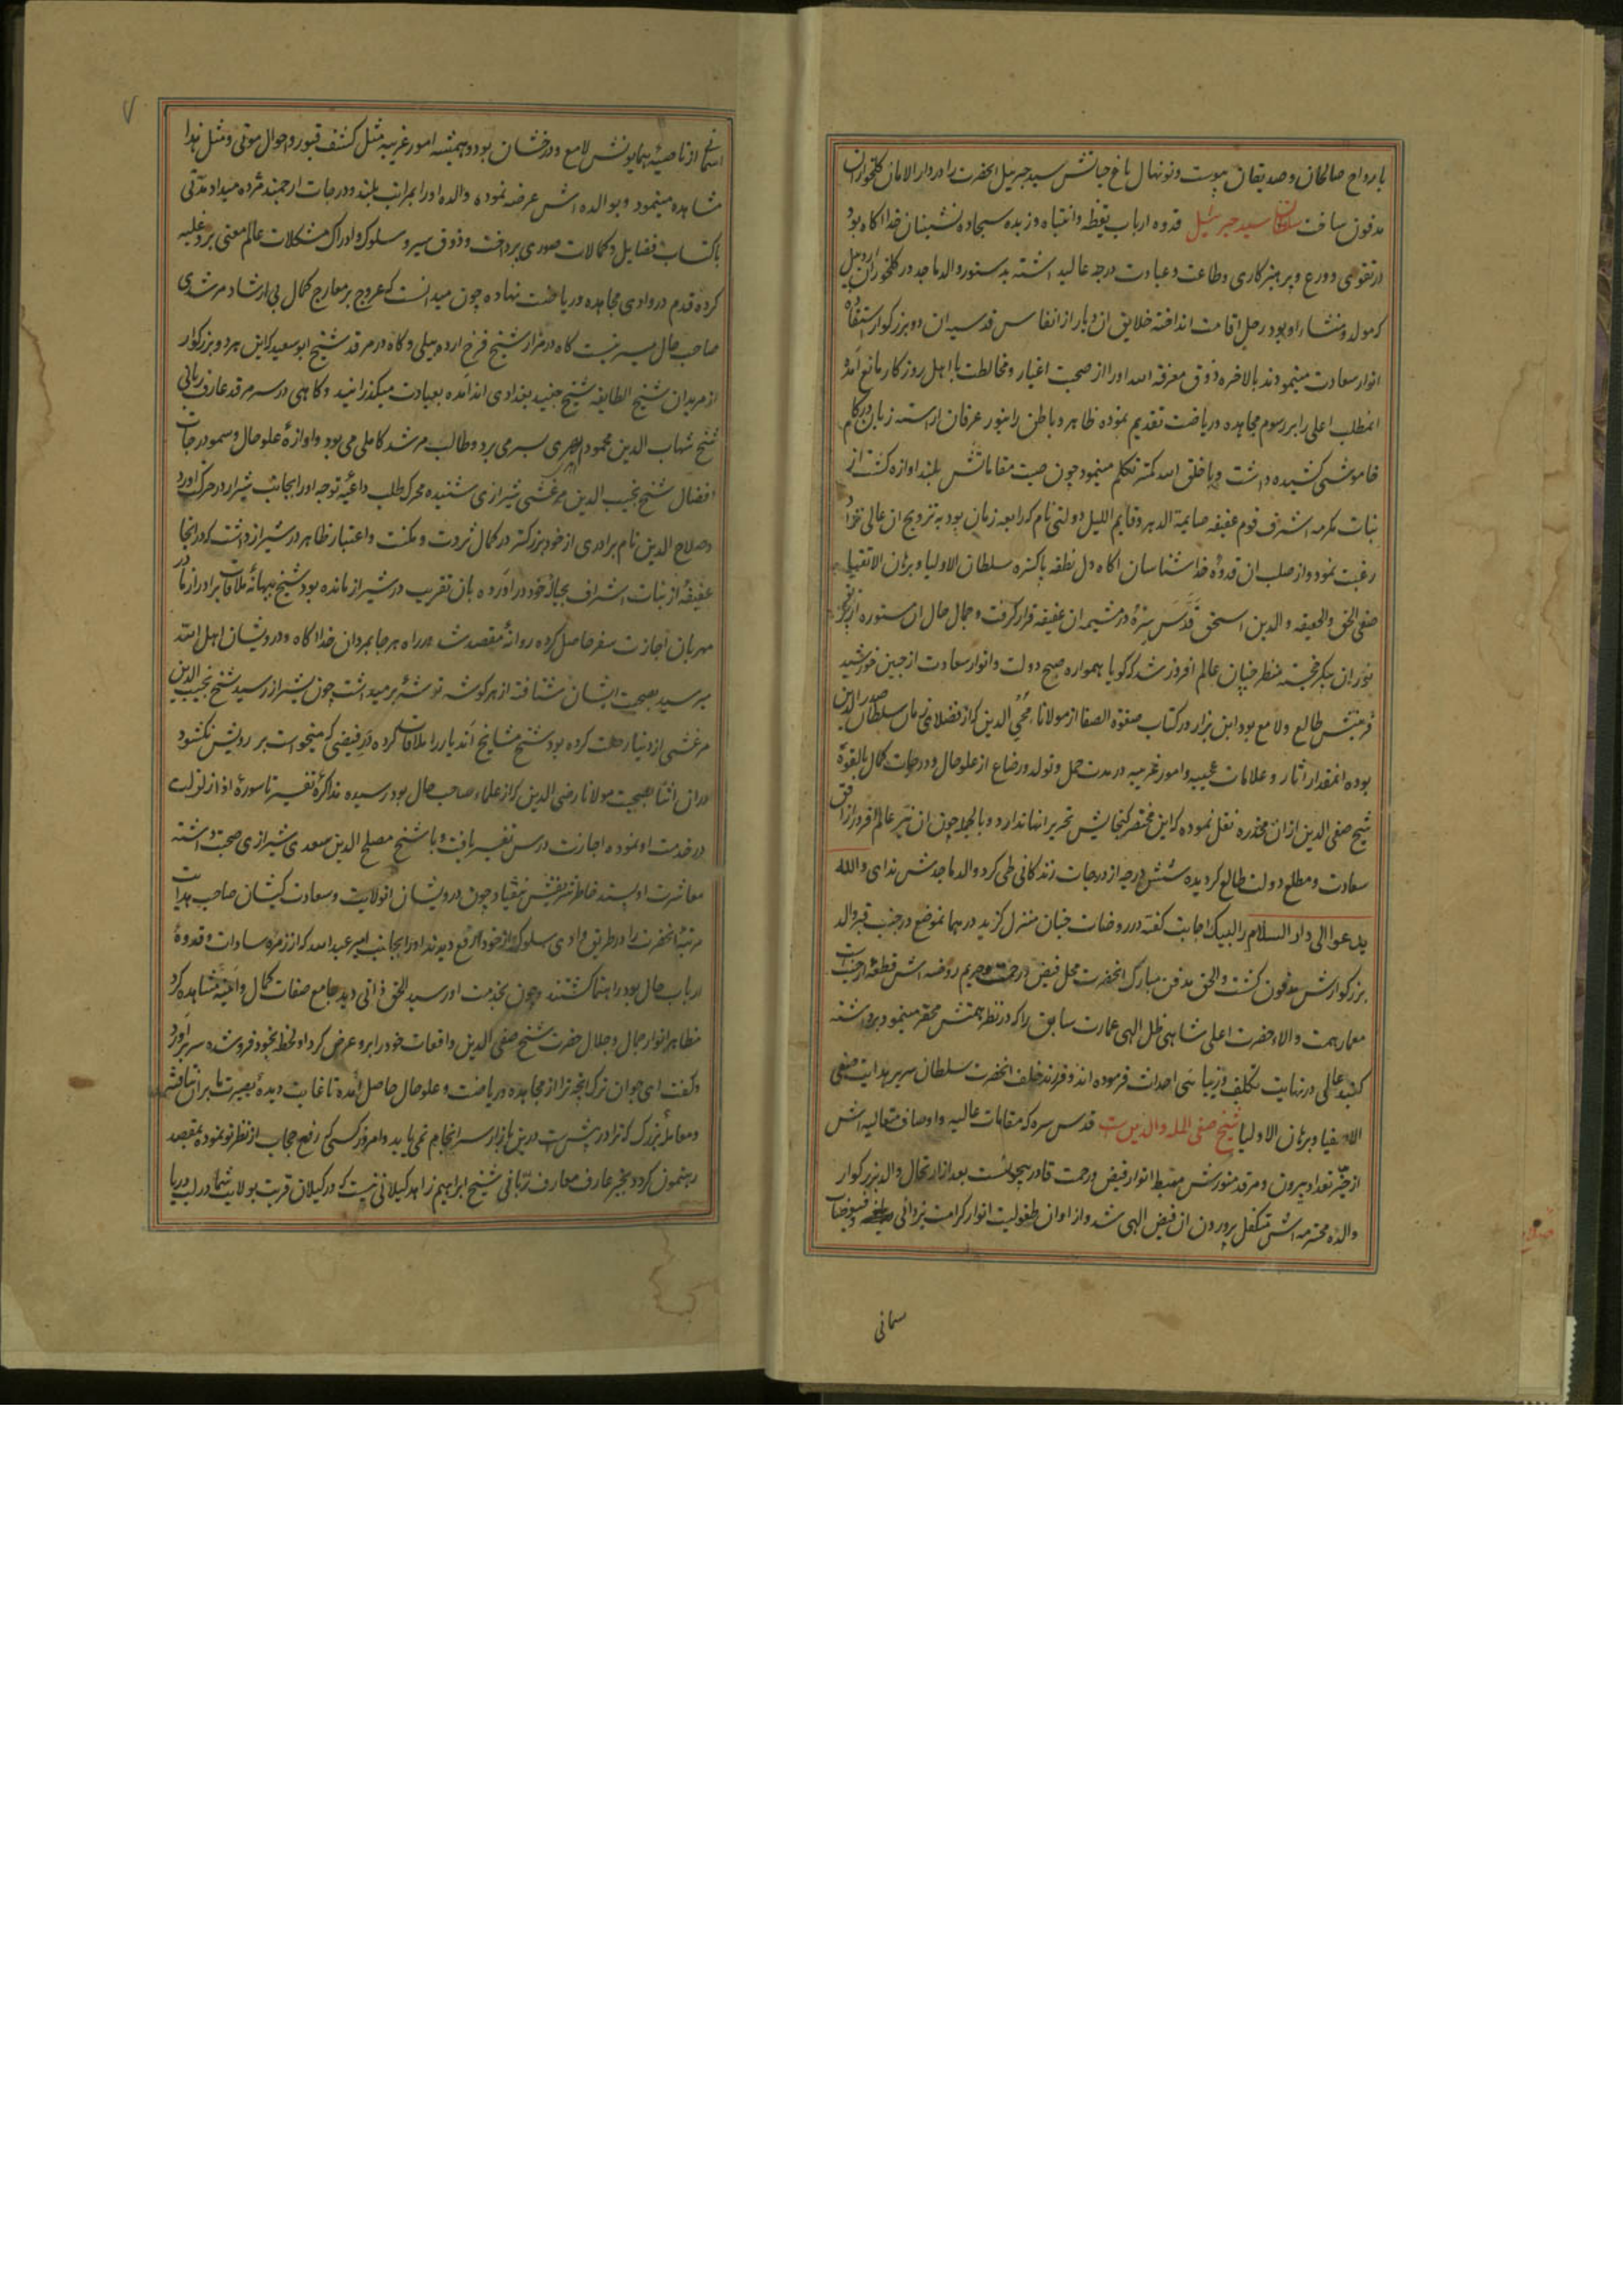 بارواح صالحان و صدیقان پیوست و نونهال باغ حیاتش سید جبرئیل انحضرت را در دار الامان کلخوران
مدفون ساخت سلطان سید جبرئیل قدوه ارباب یقظه و انتباه و زبده سجاده نشینان خدا اکاه بود
در تقوی و ورع و پرهیزکاری و طاعت و عبادت درجه عالیه داشته بدستور والد ماجد در کلخوران اردبیل
که مولد و منشاء او بود رحل اقامت انداخته خلایق ان دیار از انفاس قدسیه ان دو بزرکوار استفاده
انوار سعادت مینمودند بالاخره ذوق معرفة الله او را از صحبت اغیار و مخالطت با اهل روزکار مانع آمده
انمطلب اعلی را بر رسوم مجاهده و ریاضت تقدیم نموده ظاهر و باطن را بنور عرفان اراسته زبان در کام
خاموشی کشیده داشت و با خلق الله کمتر تکلم مینمود چون صیت مقاماتش بلند اوازه کشت از
بنات مکرمه اشرف قوم عفیفه صایمة الدهر و قایم اللیل دولتی نام که رابعه زمان بود به تزویج ان عالی نژاد
رغبت نمود و از صلب ان قدوهٔ خداشناسان اکاه دل نطفه پاکتره سلطان الاولیا و برهان الاتقیا
صفی الحق والحقیقه والدین اسحق قدس سره در مشیمه ان عفیفه قرار کرفت و جمال حال ان مستوره از پرتو
نور ان پیکر خجسته منظر چنان عالم افروز شد که کویا همواره صبح دولت و انوار سعادت از جبین خورشید
قرینش طالع و لامع بود ابن بزاز در کتاب صفوة الصفا از مولانا محی الدین که از فضلای زمان سلطان صدر الدین
بوده انمقدار اثار و علامات عجیبه و امور غریبه در مدت حمل و تولد و رضاع از علو حال و درجات کمال بالقوهٔ
شیخ صفی الدین از ان مخدره نقل نموده که این مختصر کنجایش تحریر انها ندارد و بالجمله چون ان نیر عالم افروز از افق
سعادت و مطلع دولت طالع کردیده شش درجه از درجات زندکانی طی کرد والد ماجدش ندای والله
یدعوا الی دار السلام را لبیک اجابت کفته در روضات جنان منزل کزید در همان موضع در جنب قبر والد
بزرکوارش مدفون کشت و الحق مدفن مبارک انحضرت محل فیض و رحمت و حریم روضه اش قطعهٔ از جنت
معمار همت والاء حضرت اعلی شاهی ظل الهی عمارت سابق را که در نظر همتش محقر مینمود برداشته
کنبد عالی در نهایت تکلف و زیبائی احداث فرموده اند و فرزند خلف انحضرت سلطان سریر هدایت صفی
الاصفیا و برهان الاولیا شیخ صفی المله والدین است قدس سره که مقامات عالیه و اوصاف متعالیه اش
از حیز تعداد بیرون و مرقد منورش مهبط انوار فیض و رحمت قادر بیچونست بعد از ارتحال والد بزرکوار
والده محترمه اش متکفل پرورون ان فیض الهی شد و از اوان طفولیت انوار کرامت یزدانی و فیوضات
سمانی
۷
اسمانی از ناصیهٔ همایونش لامع و درخشان بود و همیشه امور غریبه مثل کشف قبور و احوال موتی و مثل هذا
مشاهده مینمود و بوالده اش عرضه نموده والده او را بمراتب بلند و درجات ارجمند مژده میداد مدتی
باکتساب فضایل و کمالات صوری پرداخت و ذوق سیر و سلوک و ادراک مشکلات عالم معنی برو غلبه
کرده قدم در وادی مجاهده و ریاضت نهاده چون میدانست که عروج بر معارج کمال بی ارشاد مرشدی
صاحب حال میسر نیست کاه در مزار شیخ فرخ اردبیلی و کاه در مرقد شیخ ابو سعید که این هر دو بزرکوار
از مریدان شیخ الطایفه شیخ جنید بغدادی اند آمده بعبادت میکذرانید و کاهی در سر مرقد عارف ربانی
شیخ شهاب الدین محمود اهری بسر می برد و طالب مرشد کاملی می بود و اوازهٔ علو حال و سمو درجات
افضال شیخ نجیب الدین بزغشی شیرازی شنیده محرک طلب داعیهٔ توجه او را بجانب شیراز در حرکت اورد
و صلاح الدین نام برادری از خود بزرکتر در کمال ثروت و مکنت و اعتبار ظاهر در شیراز داشت که در انجا
عفیفهٔ از بنات اشراف بحبالهٔ خود در اورده بان تقریب در شیراز مانده بود شیخ ببهانهٔ ملاقات برادر از مادر
مهربان اجازت سفر حاصل کرده روانهٔ مقصد شد در راه هر جا بمردان خدا اکاه و درویشان اهل الله
میرسید بصحبت ایشان شتافته از هر کوشه توشهٔ بر میداشت چون بشیراز رسید شیخ نجیب الدین
بزغشی از دنیا رحلت کرده بود شیخ مشایخ آندیار را ملاقات کرده در فیضی که میخواست بر رویش نکشود
در ان اثنا بصحبت مولانا رضی الدین که از علماء صاحب حال بود رسیده مذاکرهٔ تفسیر تا سورهٔ اذا زلزلت
در خدمت او نموده اجازت درس تفسیر یافت و با شیخ مصلح الدین سعدی شیرازی صحبت داشته
معاشرت او پسند خاطر شریفش نیفتاد چون درویشان انولایت و سعادت کیشان صاحب هدایت
مرتبهٔ انحضرت را در طریق وادی سلوک از خود ارفع دیدند او را بجانب امیر عبدالله که از زمرهٔ سادات و قدوهٔ
ارباب حال بود راهنما کشتند و چون بخدمت او رسید الحق ذاتی دید جامع صفات کمال و آینه مشاهده کرد
مظاهر انوار جمال و جلال حضرت شیخ صفی الدین واقعات خود را برو عرض کرد او لحظه بخود فرو شده سر بر آورد
و کفت ای جوان ترک انچه ترا از مجاهده و ریاضت و علو حال حاصل آمده تا غایت دیدهٔ بصیرت ما بر ان نیافته
و معاملهٔ بزرک که ترا در پیش است درین بازار سر انجام نمی یابد و امروز کسی که رفع حجاب از نظر تو نموده بمقصد
رهنمون کردد بجز عارف معارف ربانی شیخ ابراهیم زاهد کیلانی نیست که در کیلان قریب بولایت شما در لب دریا